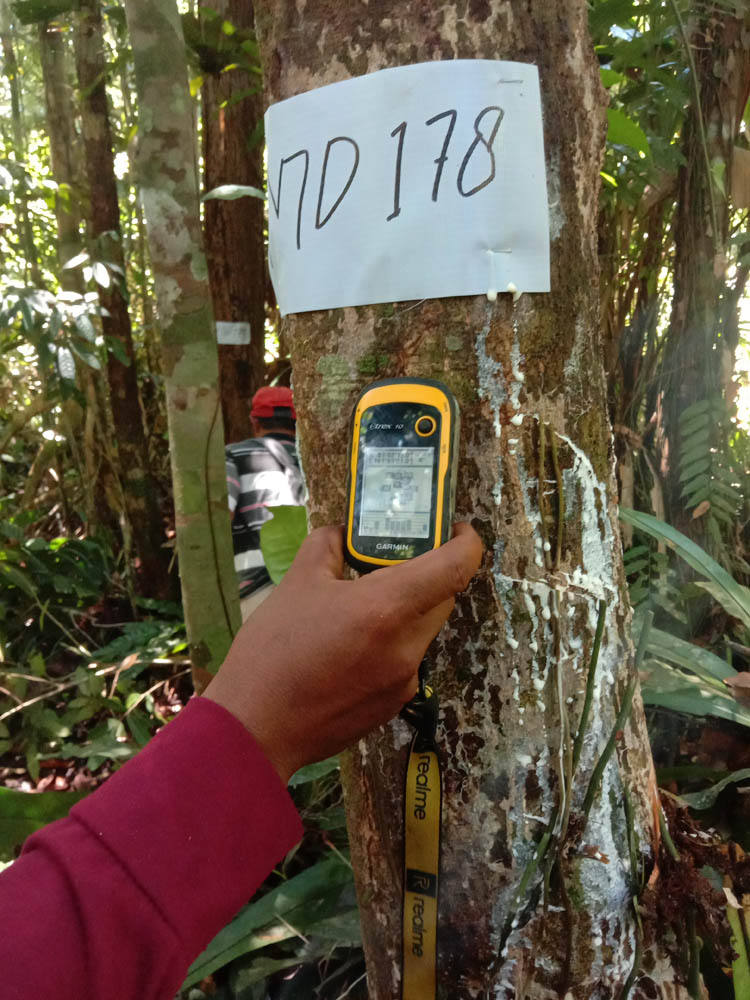 MD 178
eTrex 10
GARMIN
realme
R realme